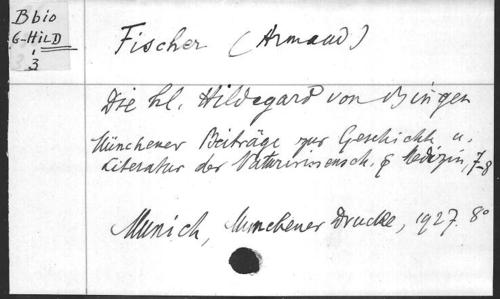 Bbio
G-HILD
3
Fischer (Armand)
Die hl. Hildegard von Bingen
Münchener Beiträge zur Geschichte u.
Literatur der Naturwissensch. & Medizin, 7-8
Munich, Münchener Drucke, 1927. 8°